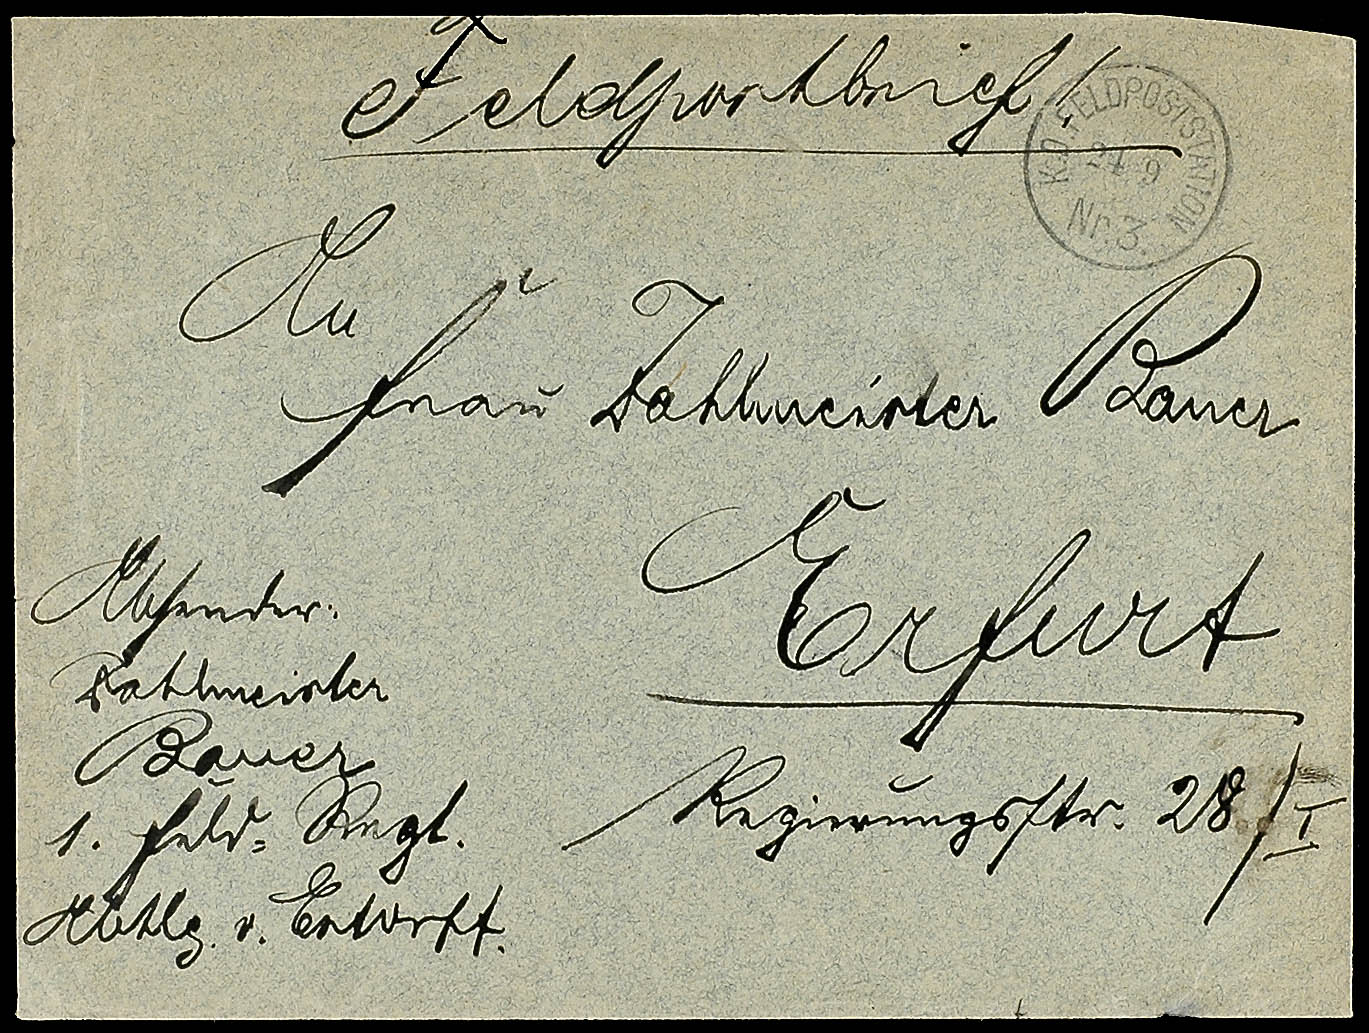 Feldpostbrief!
K.D. FELDPOSTSTATION
24 9
Nr. 3.
An
Frau Zahlmeister Bauer
Erfurt
Regierungsstr. 28/I
Absender:
Zahlmeister
Bauer
1. Feld= Regt.
Abtlg. v. Estorff.